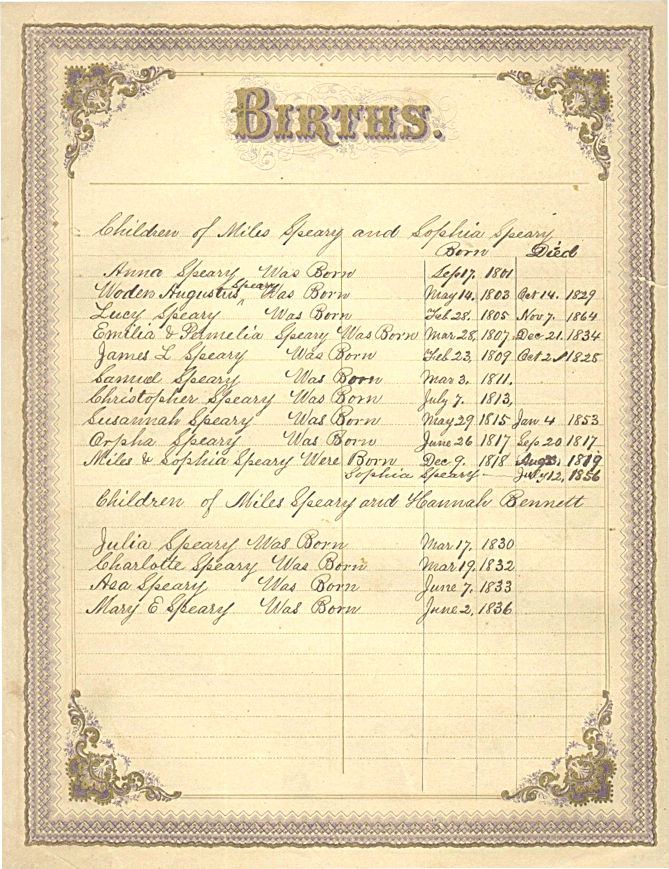 BIRTHS.
Children of Miles Speary and Sophia Speary
Born Died
Anna Speary Was Born Sep 17. 1801
Woden Augustus Speary Was Born May 14. 1803 Oct 14. 1829
Lucy Speary Was Born Feb 28. 1805 Nov 7. 1864
Emilia & Permelia Speary Was Born Mar 28, 1807, Dec 21. 1834
James L Speary Was Born Feb 23, 1809 Oct 2 1825
Samuel Speary Was Born Mar 3. 1811.
Christopher Speary Was Born July 7. 1813,
Susannah Speary Was Born May 29 1815 Jan 4 1853
Orpha Speary Was Born June 26 1817 Sep 20 1817
Miles & Sophia Speary Were Born Dec 9. 1818 Aug 1819
Sophia Speary — July 12, 1856
Children of Miles Speary and Hannah Bennett
Julia Speary Was Born Mar 17, 1830
Charlotte Speary Was Born Mar 19, 1832
Asa Speary Was Born June 7, 1833
Mary E Speary Was Born June 2, 1836